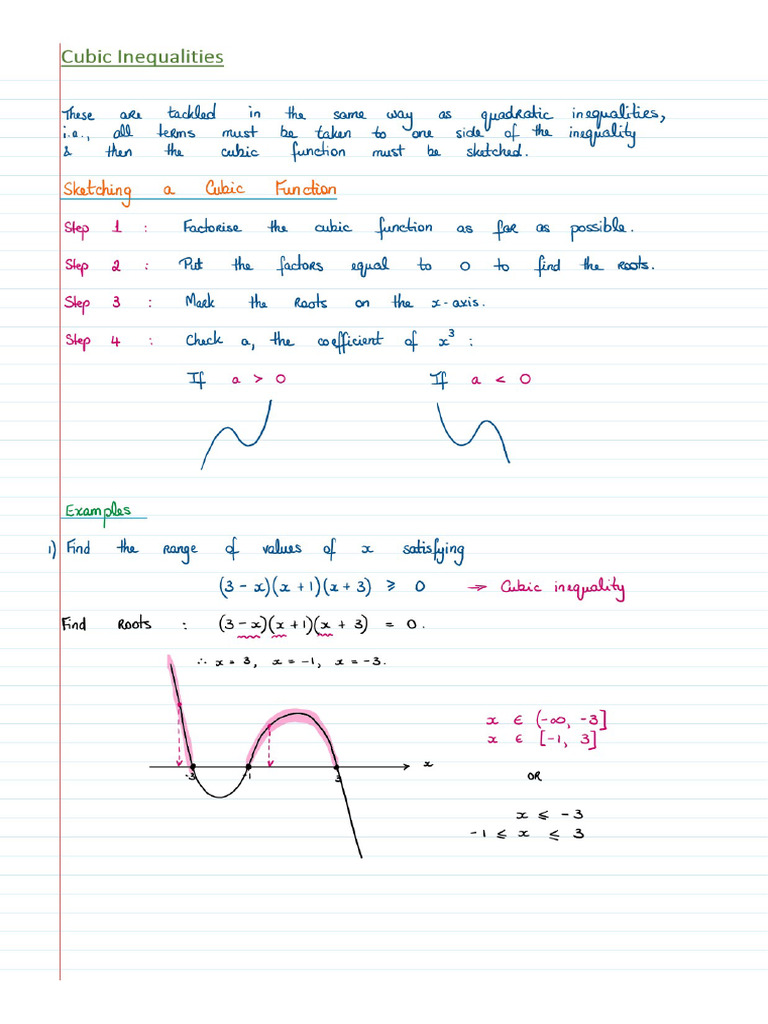 Cubic Inequalities
These are tackled in the same way as quadratic inequalities,
i.e., all terms must be taken to one side of the inequality
& then the cubic function must be sketched.
Sketching a Cubic Function
Step 1 : Factorise the cubic function as far as possible.
Step 2 : Put the factors equal to 0 to find the roots.
Step 3 : Mark the roots on the x-axis.
Step 4 : Check a, the coefficient of x³ :
If a > 0 If a < 0
Examples
1) Find the range of values of x satisfying
(3 - x)(x + 1)(x + 3) ≥ 0 → Cubic inequality
Find roots : (3 - x)(x + 1)(x + 3) = 0.
∴ x = 3, x = -1, x = -3.
x ∈ (-∞, -3]
x ∈ [-1, 3]
x
-3 -1 3
OR
x ≤ -3
-1 ≤ x ≤ 3